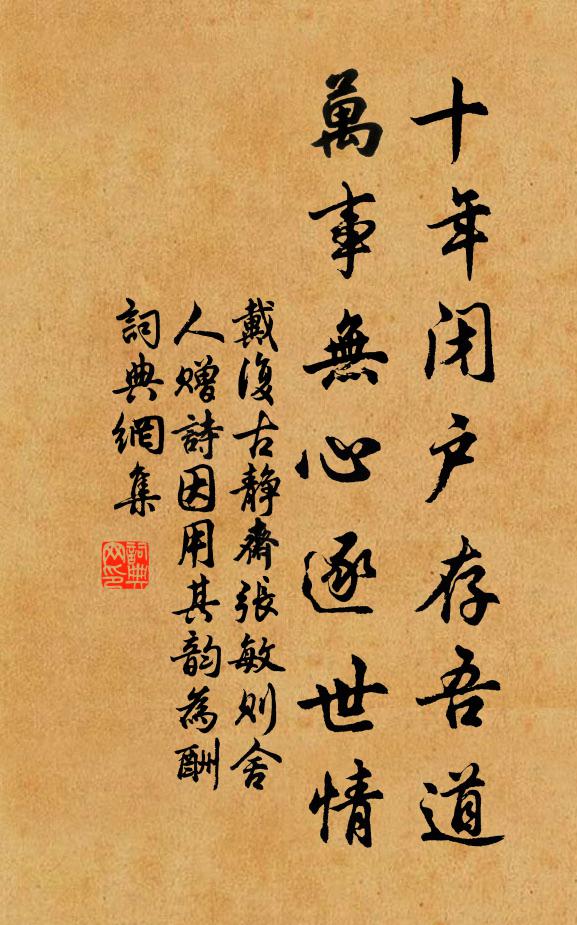 十年闭户存吾道
萬事無心逐世情
戴復古静齋張敏则舍
人赠詩因用其韵為酬
詞典網集
詞典
网印